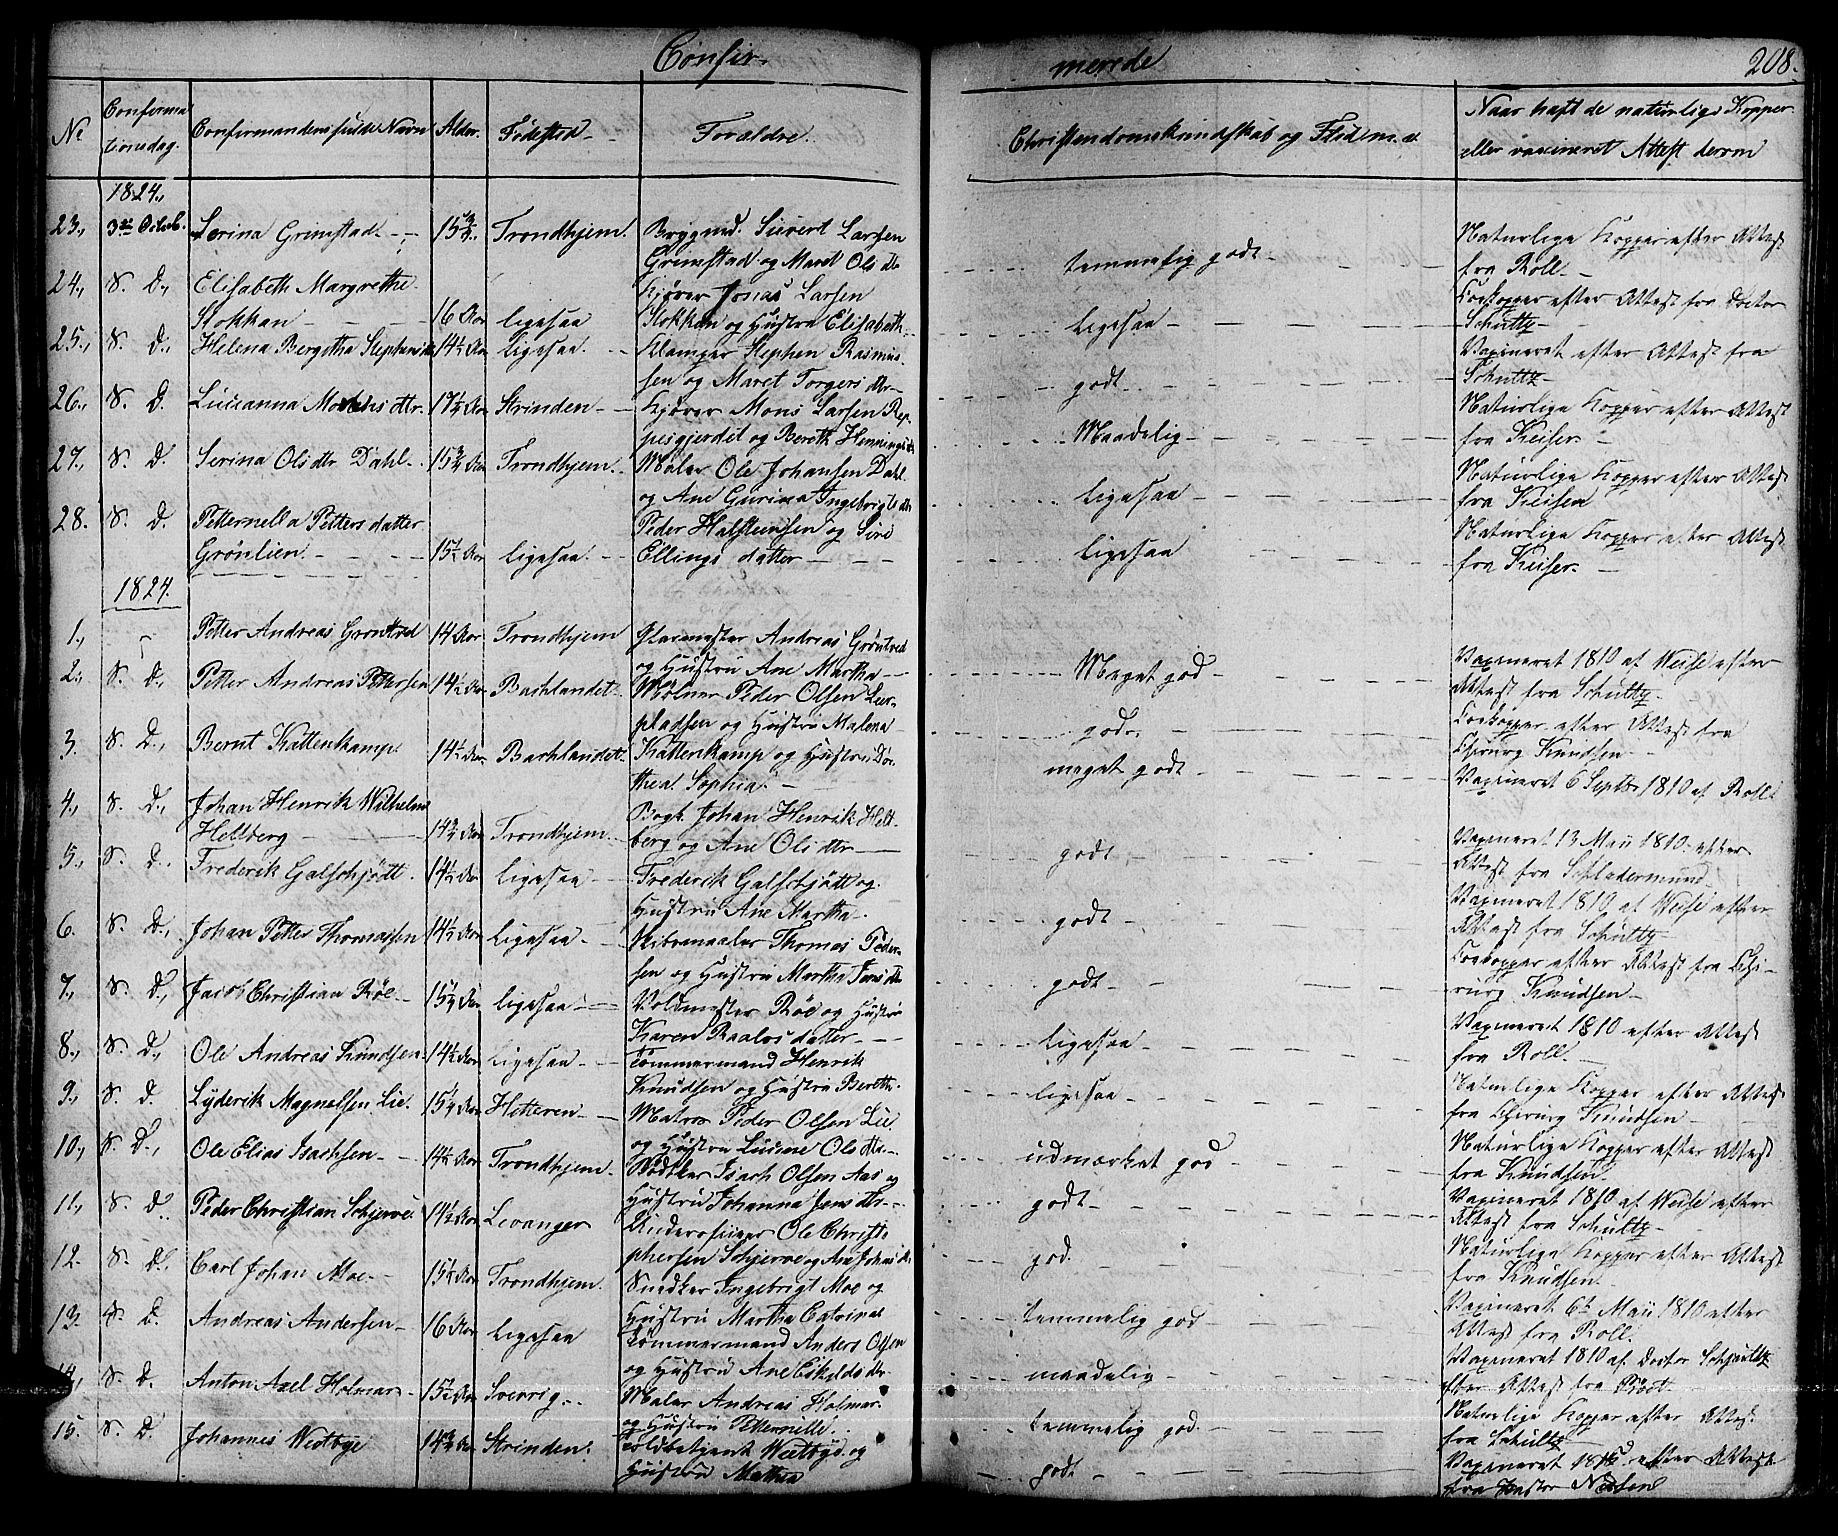 Confir-
merede
208.
No
Confirma
tionsdag.
Confirmandens fulde Navn
Alder.
Fødested
Forældre.
Christendomskundskab og Flid m. v.
Naar haft de naturlige Kopper
eller vaccineret Attest derom
1824.,
23., 3die Octob. Serina Grimstad 15 3/4. Trondhjem. Brygmd. Sivert Larsen
Grimstad og Maret Ols dtr
temmelig godt
Naturlige Kopper efter Attest
fra Roll
24., S. D., Elisabeth Margrethe
Stokkan 16 Aar ligesaa
Kjører Jonas Larsen
Stokkan og Hustru Elisabeth
ligesaa
Coekopper efter Attest fra Doctor
Schultz
25., S. D., Helena Bergitha Stephensdtr 14 1/2 Aar ligesaa.
Klamper Stephen Rasmus
sen og Maret Torgers dtr
godt
Vaxineret efter Attest fra
Schultz
26., S. D. Lucianna Mons dtr. 17 1/2 Aar Strinden
Kjører Mons Larsen Rep
pesgjerdet og Bereth Henningsdtr
Maadelig
Naturlige Kopper efter Attest
fra Keiser
27., S. D. Serina Olsdtr Dahl 15 3/4 Aar Trondhjem.
Maler Ole Johansen Dahl
og Ane Gurina Ingebrigts dtr
ligesaa
Naturlige Kopper efter Attest
fra Keiser
28. S. D. Petternella Petters datter
Grønlien 15 1/2 Aar ligesaa
Peder Halsteinsen og Siri
Ellings datter
ligesaa
Naturlige Kopper efter Attest
fra Keiser
1824.
1., Petter Andreas Grøntved 14 Aar Trondhjem
Glarmester Andreas Grøntved
og Hustru Ane Martha
Meget god
Vaxineret 1810 af Weise efter
Attest fra Schultz
2., S. D., Petter Andreas Pettersen 14 1/2 Aar Bachlandet
Mølner Peder Olsen
og Hustru Malena
god
Coekopper efter Attest fra
Chirurg Knudsen
3. S. D., Bernt Kattenkamp 14 1/2 Aar Bachlandet
Kattenkamp og Hustru Dor
thea Sophia
meget godt
Vaxineret 6 Septbr 1810 af Roll
4., S. D., Johan Henrik Wilhelm
Hellberg 14 3/4 Aar Trondhjem
Bogh. Johan Henrik Hell
berg og Ane Ols dtr
godt
Vaxineret 13 Maii 1810 efter
Attest fra Schladermund
5., S. D. Frederik Galschjøtt. 14 1/2 Aar ligesaa
Frederik Galschjøtt og
Hustru Ane Martha
godt
Vaxineret 1810 af Weise efter
Attest fra Schultz
6. S. D., Johan Petter Thomassen 14 1/2 Aar ligesaa
Thomas Peder
sen og Hustru Martha Jens dtr
godt
Coekopper efter Attest fra Chi-
rurg Knudsen
7., S. D., Jacob Christian Røe 15 1/4 Aar ligesaa
Voldmester Røe og Hustru
Karen Paals datter
ligesaa
Vaxineret 1810 efter Attest
fra Roll
8., S. D., Ole Andreas Knudsen 14 1/2 Aar ligesaa
Tømmermand Henrik
Knudsen og Hustru Bereth.
ligesaa
Naturlige Kopper efter Attest
fra Chirurg Knudsen
9., S. D. Lyderik Magnelsen Lie. 15 1/4 Aar Hitteren
Matros Peder Olsen Lie.
og Hustru Lucine Ols dtr
udmærket god
Naturlige Kopper efter Attest
fra Knudsen
10., S. D., Ole Elias Isachsen 14 1/2 Aar Trondhjem
Bødker Isach Olsen Aas og
Hustru Johanna Jens dtr
godt
Vaxineret 1810 af Weise efter
Attest fra Schultz
11., S. D. Peder Christian Schjerve. 14 1/2 Aar Levanger
Underofficer Ole Christ
phersen Schjerve og Ane Johans dtr
god.
Naturlige Kopper efter Attest
fra Knudsen
12. S. D. Carl Johan Moe 15 1/4 Aar Trondhjem.
Snedker Ingebrigt Moe og
Hustru Martha Catrina
temmelig god
Vaxineret 6te Maii 1810 efter
Attest fra Roll.
13. S. D. Andreas Andersen 16 Aar ligesaa
Tømmermand Anders Olsen
og Hustru Ane Eskelds dtr
maadelig
Vaxineret 1810 af Doctor Schultz
efter Attest fra
14. S. D. Anton Axel Holmar 15 1/2 Aar Sverrig
Maler Andreas Holmar.
og Hustru Petternille
temmelig god
Naturlige Kopper efter Attest
fra Schultz
15. S. D. Johannes Wedbye 14 3/4 Aar Strinden.
Toldbetjent Wedbye og
Hustru Mathea
godt
Vaxineret efter Attest
fra Pastor